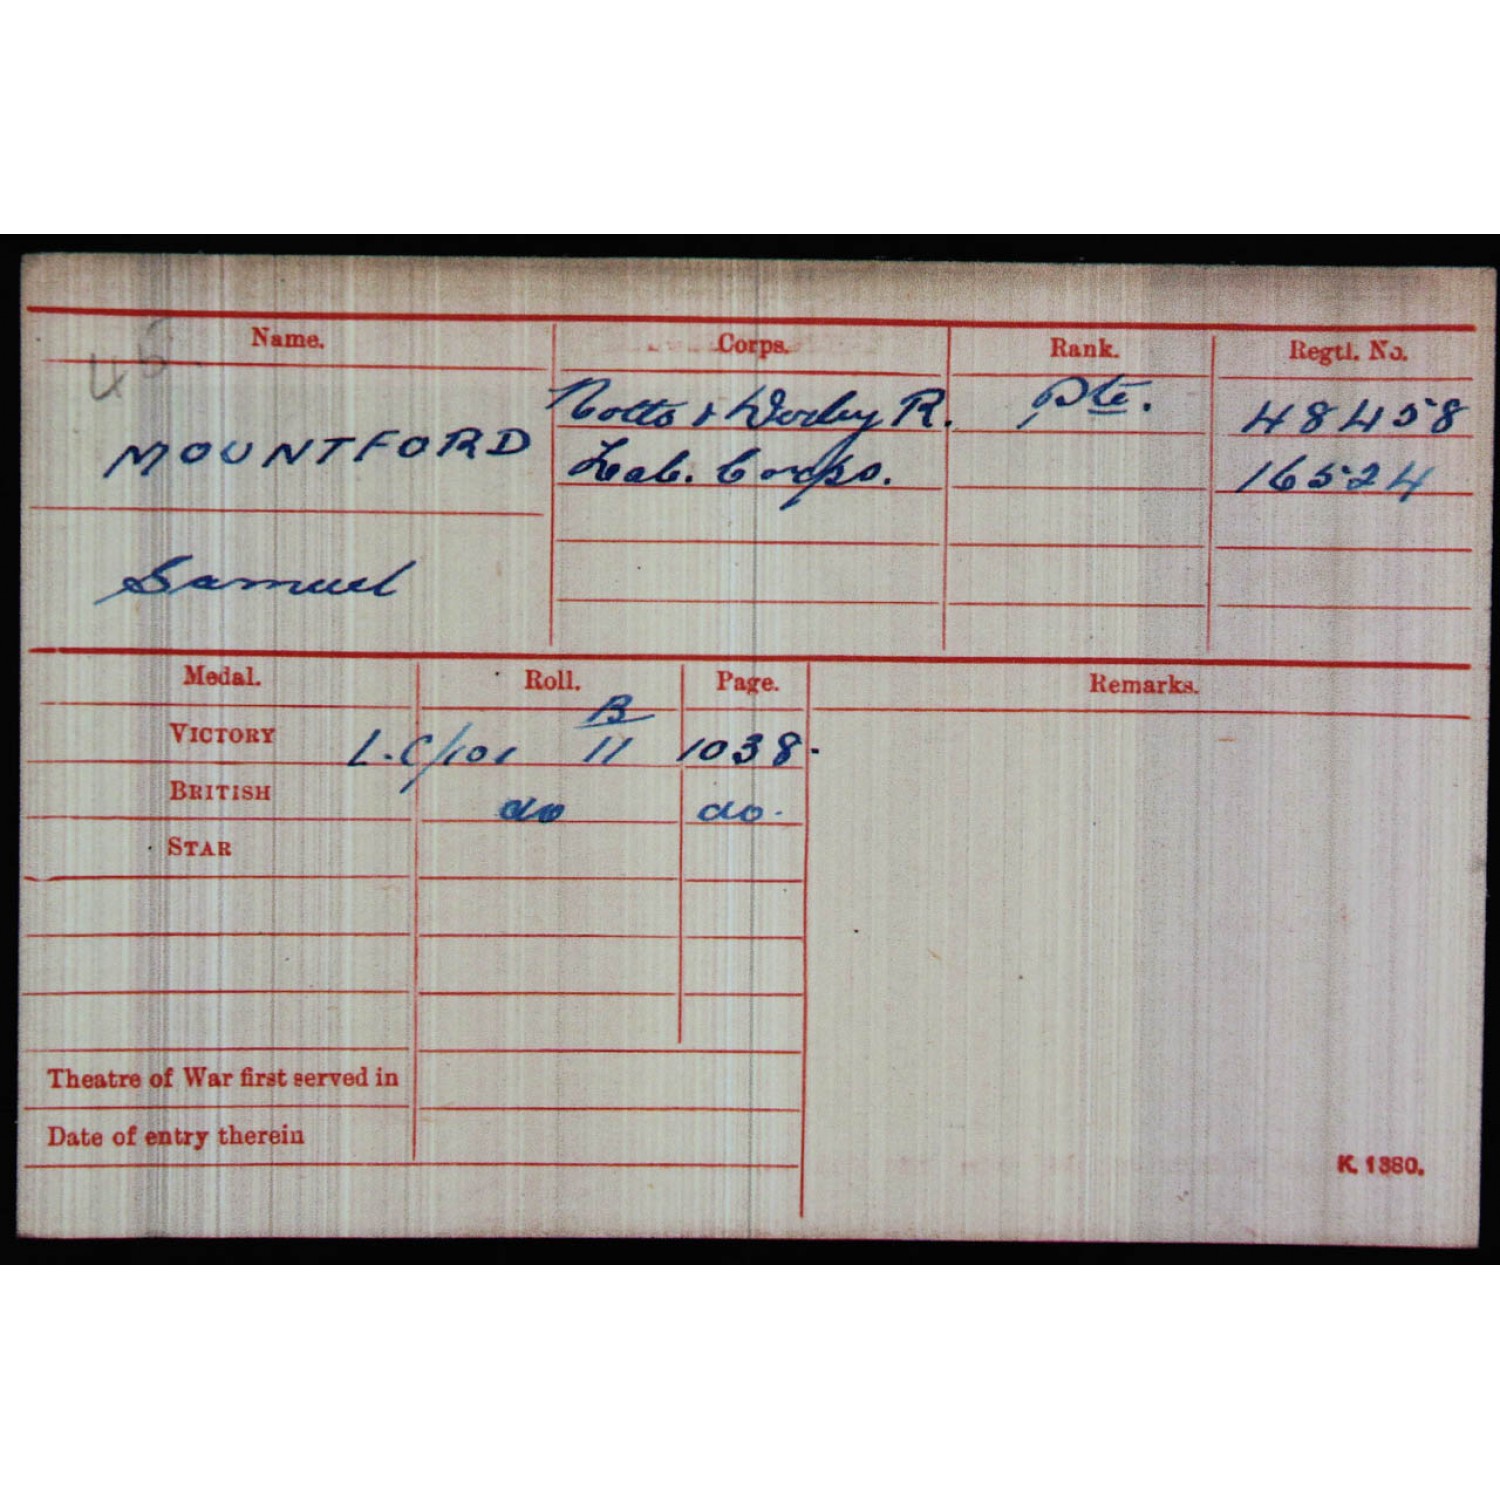 Name. Corps. Rank. Regtl. No.
46
Notts & Derby R. Pte. 48458
MOUNTFORD
Lab. Corps. 16524
Samuel
Medal. Roll. Page. Remarks.
B
VICTORY L.C/101 11 1038.
BRITISH do do.
STAR
Theatre of War first served in
Date of entry therein
K. 1380.